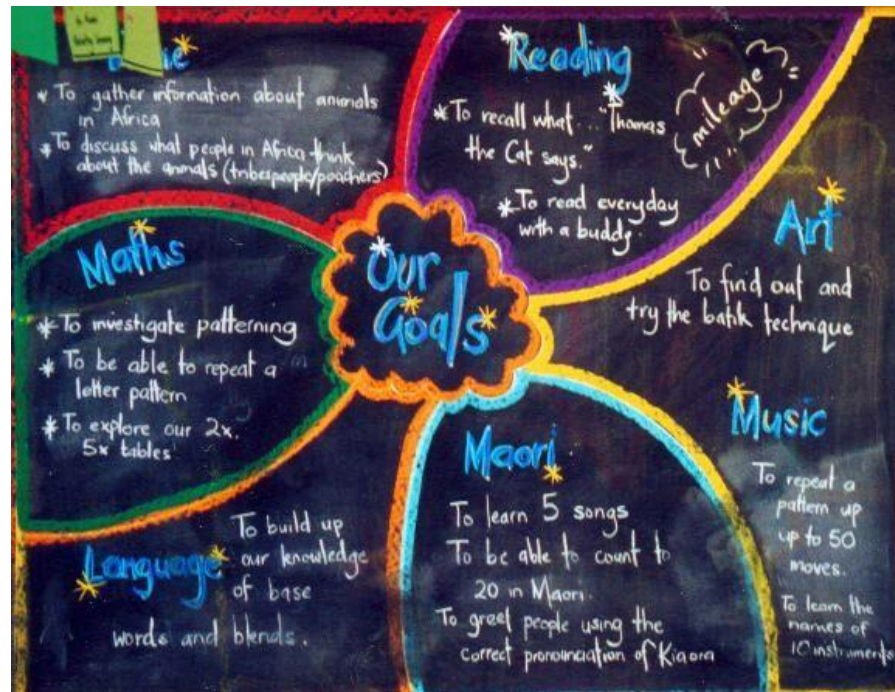 Our
Goals
* To gather information about animals
in Africa
* To discuss what people in Africa think
about the animals (tribespeople/poachers)
Reading
* To recall what... "Thomas
the Cat says."
* To read everyday
with a buddy.
mileage
Art
To find out and
try the batik technique
Maths
* To investigate patterning
* To be able to repeat a
letter pattern
* To explore our 2x,
5x tables
Language
To build up
our knowledge
of base
words and blends.
Maori
To learn 5 songs
To be able to count to
20 in Maori.
To greet people using the
correct pronounciation of Kiaora
Music
To repeat a
pattern up
up to 50
moves.
To learn the
names of
10 instruments